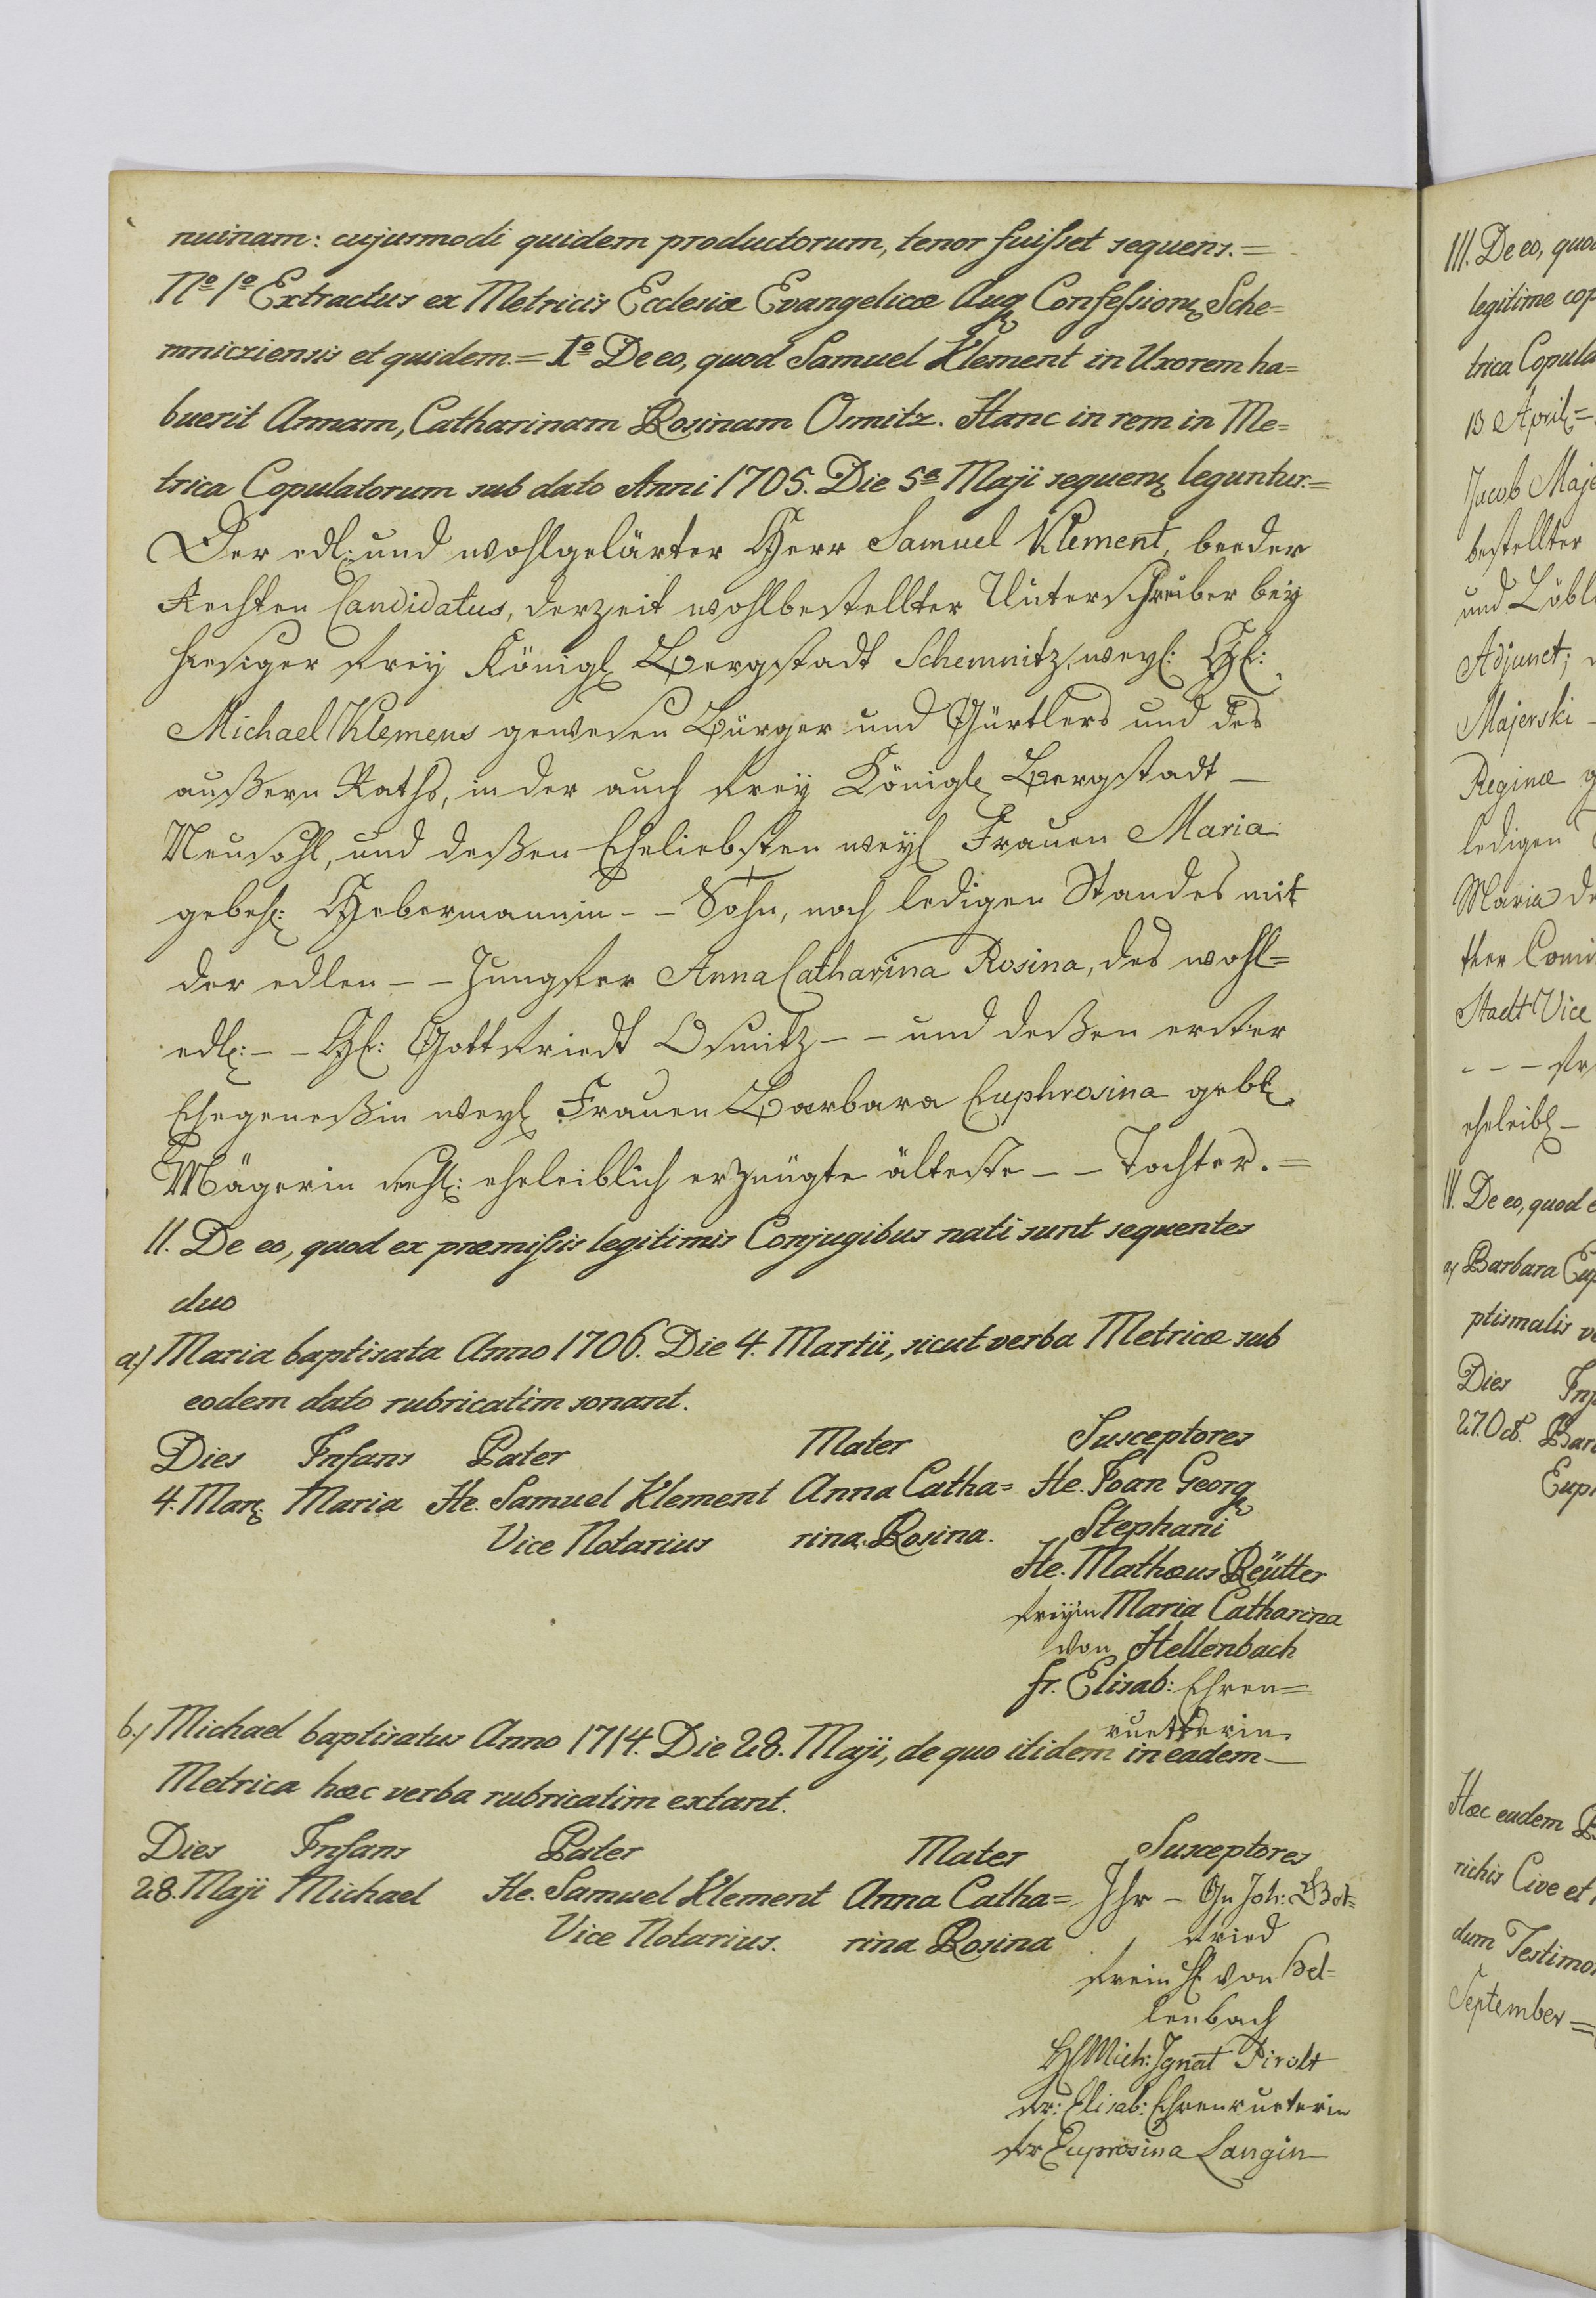 nuinam: cujusmodi quidem productorum, tenor fuisset sequens. =
No 1o Extractus ex Metricis Ecclesiæ Evangelicæ Aug Confession Sche=
mnicziensis et quidem. = Io De eo, quod Samuel Klement in Uxorem ha=
buerit Annam, Catharinam Rosinam Osmitz. Hanc in rem in Me=
trica Copulatorum sub dato Anni 1705. Die 5a Maji sequen leguntur. =
Der edl: und wohlgelärter Herr Samuel Klement, beeder
Rechten Candidatus, derzeit wohlbestellter Unterschreiber bey
hiesiger frey Königl Bergstadt Schemnitz, weyl: H:
Michael Klemens gewesen Bürger und Gürtlers und des
außern Raths, in der auch frey Königl Bergstadt —
Neusohl, und deßen Eheliebsten weyl Frauen Maria
geboh: Hebermannin - - Sohn, noch ledigen Standes mit
der edlen - - Jungfer Anna Catharina Rosina, des wohl=
edl: - - H: Gottfriedt Osmitz - - und deßen erster
Ehegeneßin weyl Frauen Barbara Euphrosina geb
Mägerin ehl: eheleiblich erzeügte älteste - - Tochter. =
II. De eo, quod ex præmissis legitimis Conjugibus nati sunt sequentes
duo
a.) Maria baptisata Anno 1706. Die 4. Martii, sicut verba Metricæ sub
eodem dato rubricatim sonant.
Dies Infans Pater Mater Susceptores
4. Mar Maria He. Samuel Klement Anna Catha= He. Joan Georg
Vice Notarius rina Rosina. Stephani
He. Mathæus Reütter
freyin Maria Catharina
von Hellenbach
fr. Elisab: Ehren=
ruetterin
b.) Michael baptisatus Anno 1714. Die 28. Maji, de quo itidem in eadem —
Metrica hæc verba rubricatim extant.
Dies Infans Pater Mater Susceptores
28. Maji Michael He. Samuel Klement Anna Catha= Ihr - Gn Joh: Got=
Vice Notarius. rina Rosina fried
freih von Hel=
lenbach
H Mich: Ignat Pirolt
fr: Elisab: Ehrenrueterin
fr Euprosina Langin —
III. De eo, quo
legitime cop
trica Copula
13 April =
Jacob Maje
bestellter
und Löbl
Adjunct;
Majerski -
Reginæ g
ledigen
Maria de
ther Comi
Stadt Vice
- - - fr
eheleibl -
IV. De eo, quod e
a) Barbara Eup
ptismalis ve
Dies Inf
27. Oct. Bar
Euph
Hæc eadem B
richis Cive et
dum Testimo
September =